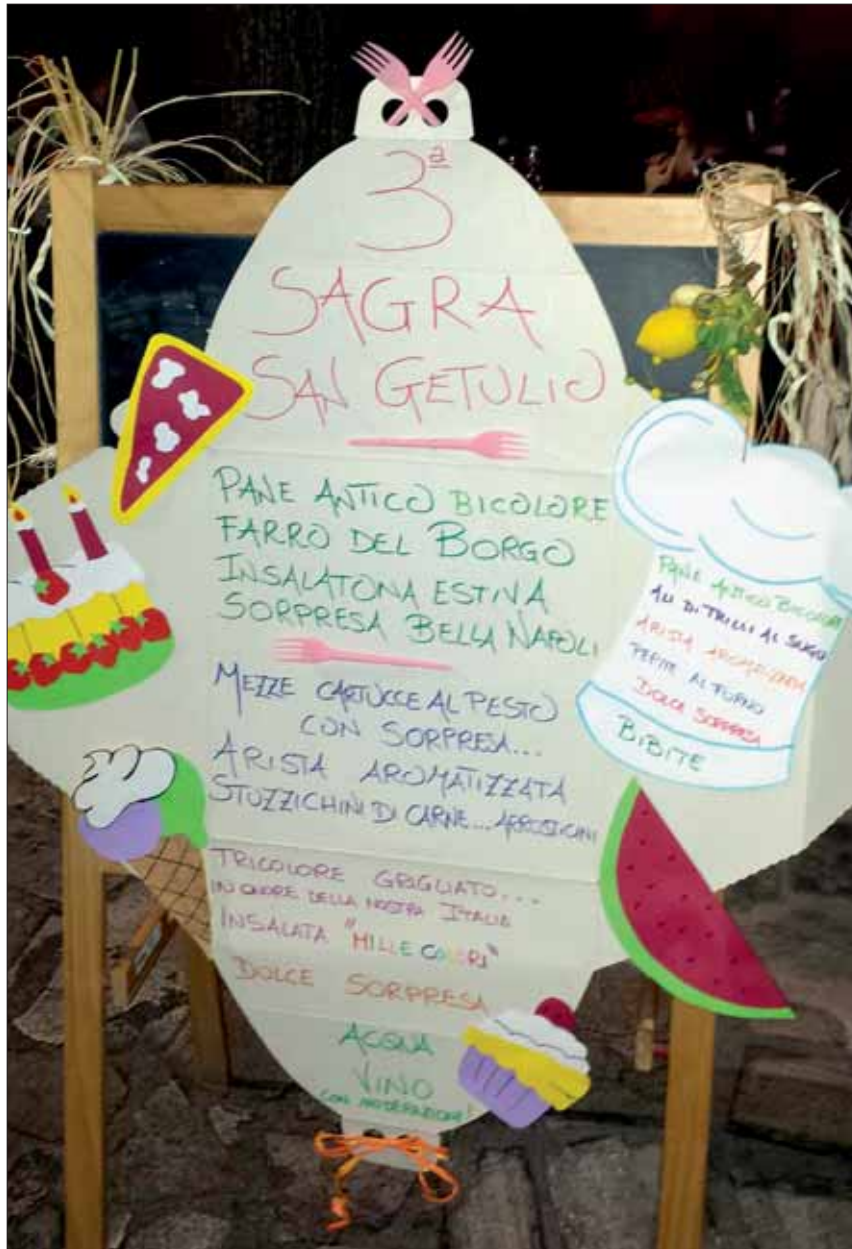 3ª
SAGRA
SAN GETULIO
PANE ANTICO BICOLORE
FARRO DEL BORGO
INSALATONA ESTIVA
SORPRESA BELLA NAPOLI
MEZZE CARTUCCE AL PESTO
CON SORPRESA...
ARISTA AROMATIZZATA
STUZZICHINI DI CARNE... ARROSTICINI
TRICOLORE GRIGLIATO...
IN ONORE DELLA NOSTRA ITALIA
INSALATA "MILLE COLORI"
DOLCE SORPRESA
ACQUA
VINO
CON MODERAZIONE!
PANE ANTICO BICOLORE
ALI DI TRILLI AL SUGO
ARISTA AROMATIZZATA
PEPITE AL FORNO
DOLCE SORPRESA
BIBITE